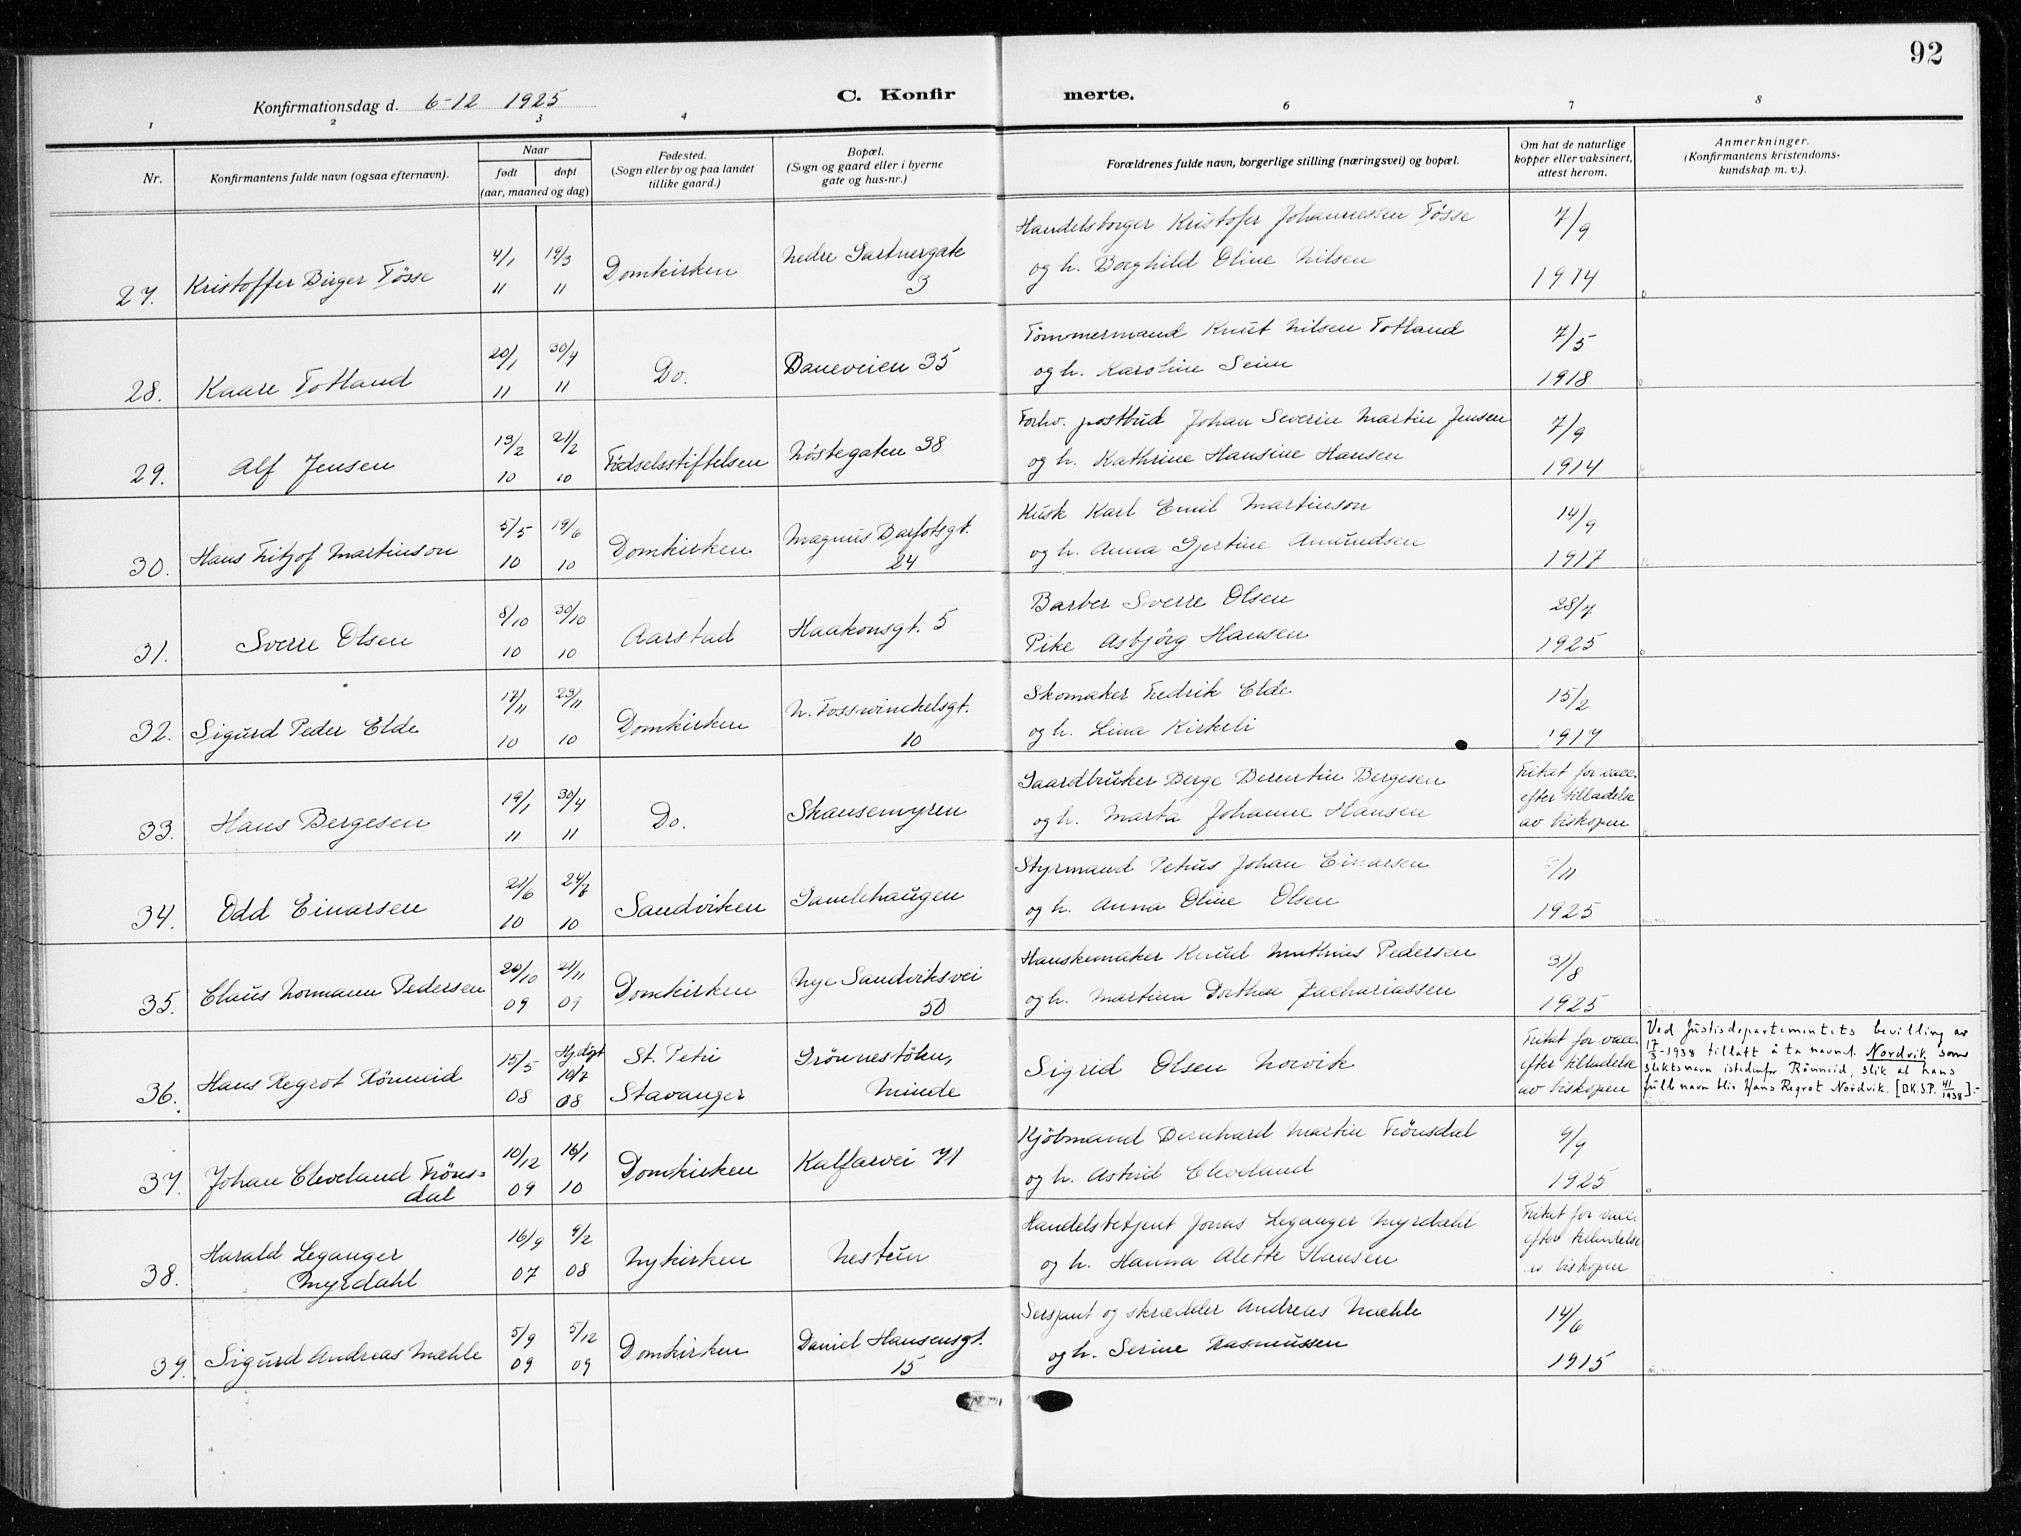 92
Konfirmationsdag d. 6-12 1925
C. Konfir merte.
1 2 3 4 6 7 8
Nr.
Konfirmantens fulde navn (ogsaa efternavn).
Naar
født
døpt
(aar, maaned og dag)
Fødested.
(Sogn eller by og paa landet
tillike gaard.)
Bopæl.
(Sogn og gaard eller i byerne
gate og hus-nr.)
Forældrenes fulde navn, borgerlige stilling (næringsvei) og bopæl.
Om hat de naturlige
kopper eller vaksinert,
attest herom.
Anmerkninger.
(Konfirmantens kristendoms-
kundskap m. v.).
27. Kristoffer Birger Tösse 4/1 11 19/3 11 Domkirken Nedre Gartnergate 3
Handelsborger Kristofer Johannessen Tösse
og h. Borghild Oline Nilsen
7/9 1914
28. Kaare Totland 20/1 11 30/4 11 Do. Baneveien 35
Tömmermand Knut Nilsen Totland
og h. Karoline Seim
7/5 1918
29. Alf Jensen 13/2 10 21/2 10 Födselsstiftelsen Nöstegaten 38
Forhv. postbud Johan Severin Martin Jensen
og h. Kathrine Hansine Hansen
7/9 1914
30. Hans Fritjof Martinson 5/5 10 19/6 10 Domkirken Magnus Barfotsgt. 24
Kusk Karl Emil Martinson
og h. Anna Gjertine Amundsen
14/9 1917
31. Sverre Olsen 8/10 10 30/10 10 Aarstad Haakonsgt. 5
Barber Sverre Olsen
Pike Asbjörg Hansen
28/7 1925
32. Sigurd Peder Elde 17/11 10 23/11 10 Domkirken N. Fosswinckelsgt. 10
Skomaker Fredrik Elde
og h. Lina Kirkeli
15/2 1917
33. Hans Bergesen 19/1 11 30/4 11 Do. Skansemyren
Gaardbruker Berge Berentin Bergesen
og h. Marta Johanne Hansen
Fritat for vacc.
efter tilladelse
av biskopen
34. Odd Einarsen 21/6 10 24/7 10 Sandviken Gamlehaugen
Styrmand Petrus Johan Einarsen
og h. Anna Oline Olsen
3/11 1925
35. Claus Normann Pedersen 20/10 09 21/11 09 Domkirken Nye Sandviksvei 50
Hanskemaker Knud Mathias Pedersen
og h. Martina Dorthea Zachariassen
31/8 1925
36. Hans Regrot Rönneid 15/5 08 Hj.döpt 10/7 08 St. Petri Stavanger Grönnestölen, Minde
Sigrid Olsen Norvik
Fritat for vacc.
efter tilladelse
av biskopen
Ved Justisdepartementets bevilling av
17/3-1938 tillatt å ta navnet Nordvik som
slektsnavn istedenfor Rönneid, slik at hans
fulle navn blir Hans Regrot Nordvik. [D.K.S.P. 41/1938].-
37. Johan Cleveland Frönsdal 10/12 09 16/1 10 Domkirken Kalfarvei 71
Kjöbmand Bernhard Martin Frönsdal
og h. Astrid Cleveland
9/9 1925
38. Harald Leganger Myrdahl 16/9 07 9/2 08 Nykirken Nestun
Handelsbetjent Jonas Leganger Myrdahl
og h. Hanna Alette Hansen
Fritat for vacc.
efter tilladelse
av biskopen
39. Sigurd Andreas Mæhle 5/9 09 5/12 09 Domkirken Daniel Hansensgt. 15
Sersjant og skrædder Andreas Mæhle
og h. Serine Rasmussen
14/6 1915